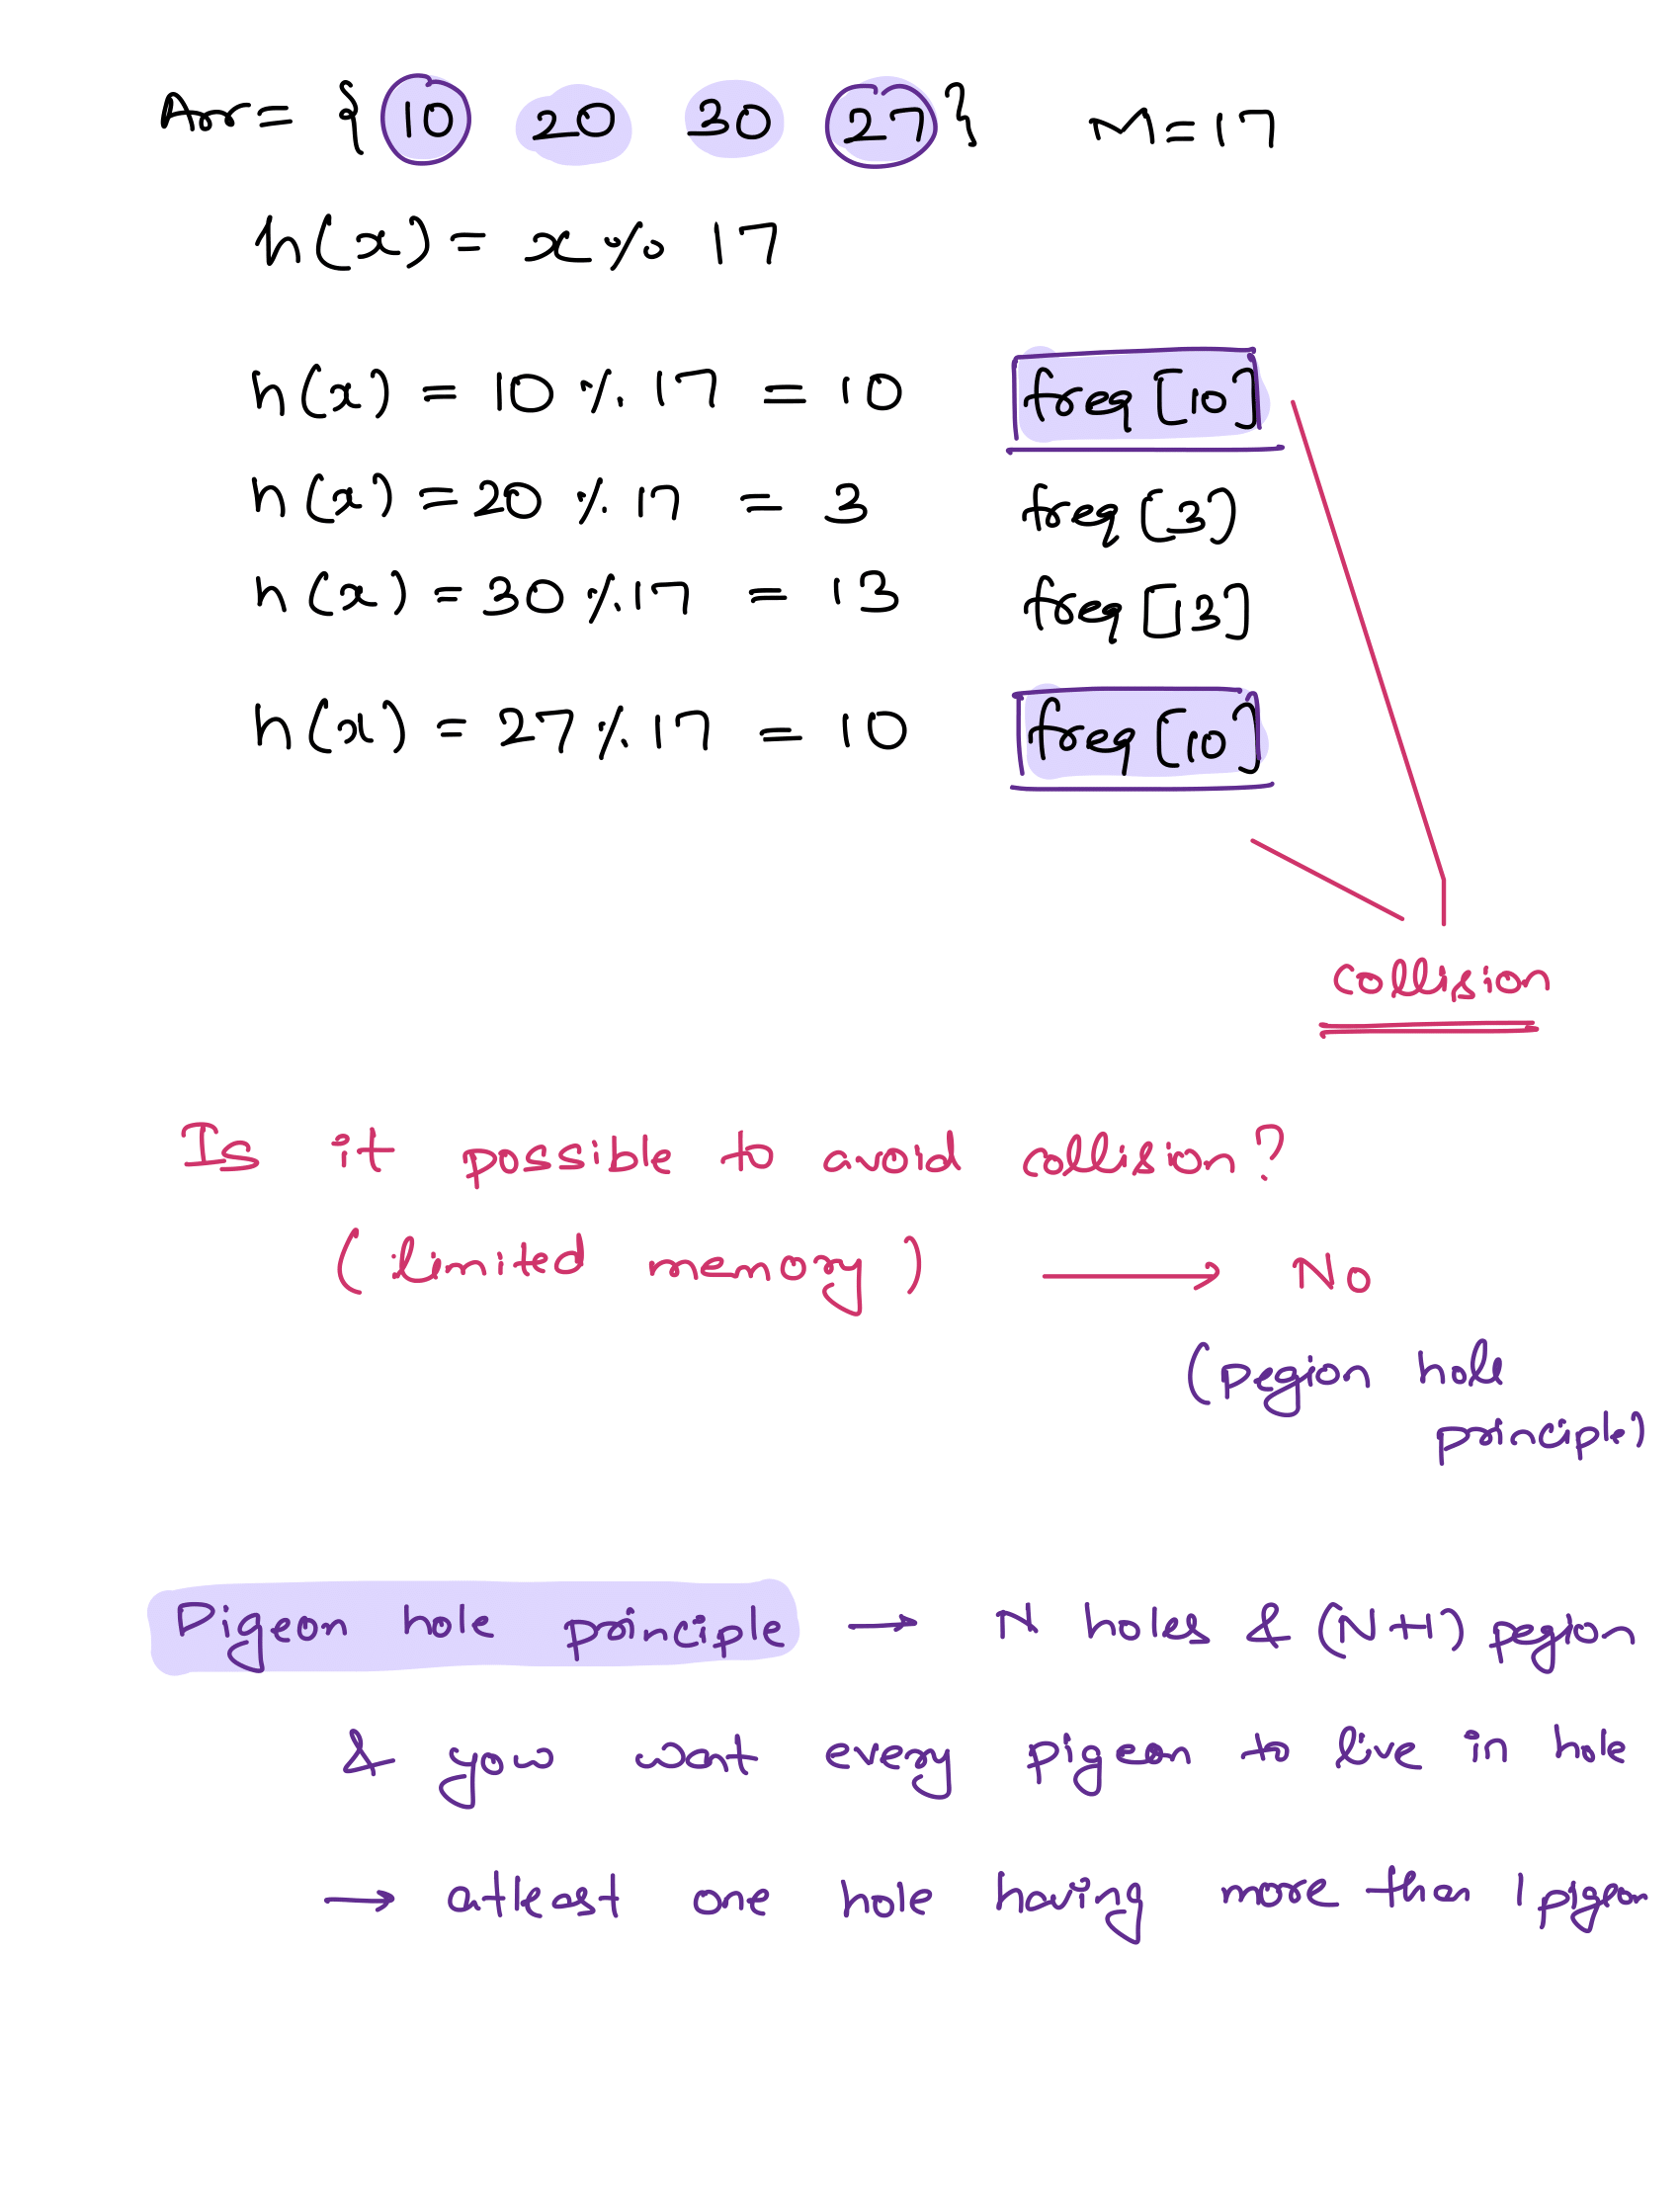 Arr = { 10 20 30 27 } M = 17
h(x) = x % 17
h(x) = 10 % 17 = 10 freq [10]
h(x) = 20 % 17 = 3 freq [3)
h(x) = 30 % 17 = 13 freq [13]
h(x) = 27 % 17 = 10 freq [10]
collision
Is it possible to avoid collision?
( limited memory ) → No
(pegion hole
principle)
Pigeon hole principle → N holes & (N+1) pegion
& you wat every pigeon to live in hole
→ atleast one hole having more than 1 pigeon